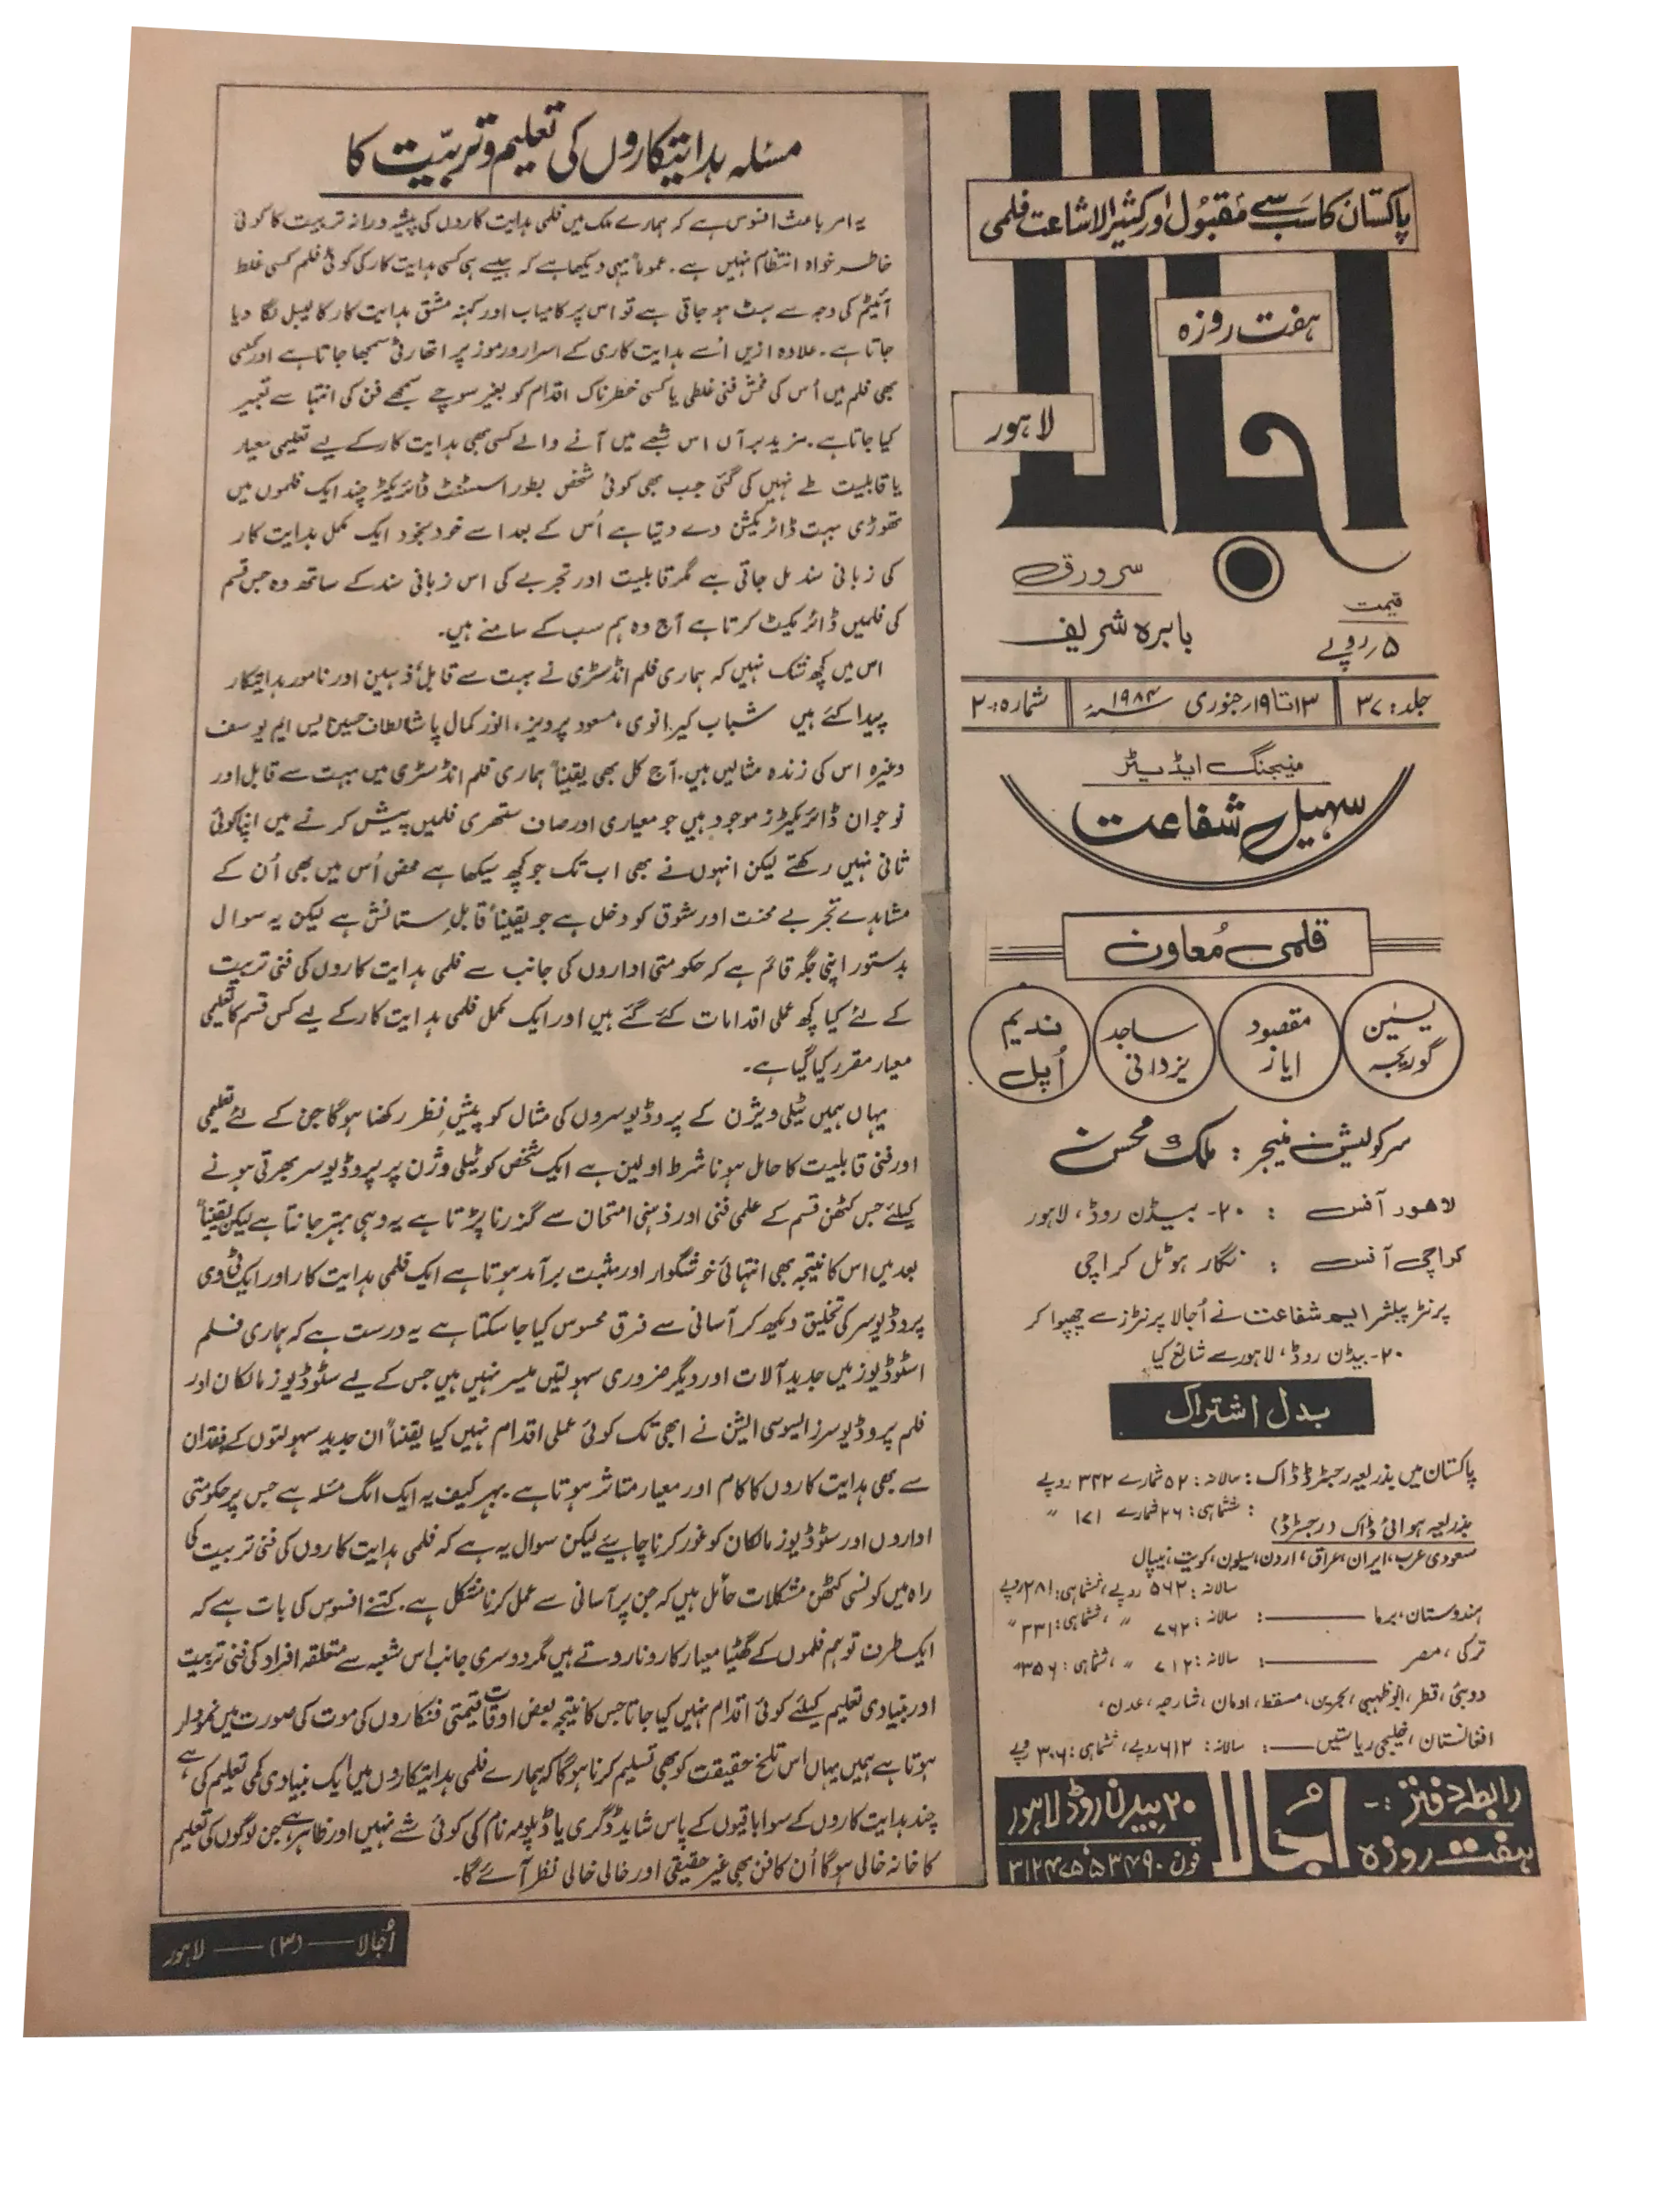 پاکستان کا سب سے مقبول اور کثیر الاشاعت فلمی
ہفت روزہ
اجالا
لاہور
سرورق
بابرہ شریف
قیمت
۵ روپے
جلد: ۳۷
۱۳ تا ۱۹ جنوری ۱۹۸۴ء
شمارہ: ۲
منیجنگ ایڈیٹر
سہیل شفاعت
قلمی معاون
یٰسین گوریجہ
مقصود ایاز
ساجد یزدانی
ندیم اُپل
سرکولیشن منیجر : ملک محسن
لاہور آفس : ۲۰- بیڈن روڈ، لاہور
کراچی آفس : نگار ہوٹل کراچی
پرنٹر پبلشر ایم شفاعت نے اُجالا پرنٹرز سے چھپوا کر
۲۰- بیڈن روڈ، لاہور سے شائع کیا
بدل اشتراک
پاکستان میں بذریعہ رجسٹرڈ ڈاک: سالانہ: ۵۲ شمارے ۳۴۲ روپے
: ششماہی: ۲۶ شمارے ۱۷۱ ״
بذریعہ ہوائی ڈاک (رجسٹرڈ)
سعودی عرب، ایران، عراق، اردن، سیلون، کویت، نیپال
سالانہ: ۵۶۲ روپے، ششماہی: ۲۸۱ روپے
ہندوستان، برما ——: سالانہ: ۷۶۲ ״ ، ششماہی: ۳۳۱ ״
ترکی، مصر ——: سالانہ: ۷۱۲ ״ ، ششماہی: ۳۵۶ ״
دوبئی، قطر، ابوظہبی، بحرین، مسقط، اومان، شارجہ، عدن،
افغانستان، خلیجی ریاستیں ——: سالانہ: ۶۱۲ روپے، ششماہی: ۳۰۶ روپے
رابطہ دفتر :-
ہفت روزہ اُجالا
۲۰ بیڈن روڈ لاہور
فون
مسئلہ ہدایتکاروں کی تعلیم و تربیّت کا
یہ امر باعث افسوس ہے کہ ہمارے ملک میں فلمی ہدایت کاروں کی پیشہ ورانہ تربیت کا کوئی
خاطر خواہ انتظام نہیں ہے۔ عموماً یہی دیکھا ہے کہ جیسے ہی کسی ہدایت کار کی کوئی فلم کسی غلط
آئیٹم کی وجہ سے ہٹ ہو جاتی ہے تو اس پر کامیاب اور کہنہ مشق ہدایت کار کا لیبل لگا دیا
جاتا ہے۔ علاوہ ازیں اُسے ہدایت کاری کے اسرار و رموز پر اتھارٹی سمجھا جاتا ہے اور کسی
بھی فلم میں اُس کی فحش فنی غلطی یا کسی خطرناک اقدام کو بغیر سوچے سمجھے فن کی انتہا سے تعبیر
کیا جاتا ہے۔ مزید برآں اس شعبے میں آنے والے کسی بھی ہدایت کار کے لیے تعلیمی معیار
یا قابلیت طے نہیں کی گئی جب بھی کوئی شخص بطور اسسٹنٹ ڈائریکٹر چند ایک فلموں میں
تھوڑی بہت ڈائریکشن دے دیتا ہے اُس کے بعد اسے خود بخود ایک مکمل ہدایت کار
کی زبانی سند مل جاتی ہے مگر قابلیت اور تجربے کی اس زبانی سند کے ساتھ وہ جس قسم
کی فلمیں ڈائریکٹ کرتا ہے آج وہ ہم سب کے سامنے ہیں۔
اس میں کچھ شک نہیں کہ ہماری فلم انڈسٹری نے بہت سے قابل ذہین اور نامور ہدایتکار
پیدا کئے ہیں شباب کیرانوی، مسعود پرویز، انور کمال پاشا لطاف حسین ایس ایم یوسف
وغیرہ اس کی زندہ مثالیں ہیں۔ آج کل بھی یقیناً ہماری فلم انڈسٹری میں بہت سے قابل اور
نوجوان ڈائریکٹرز موجود ہیں جو معیاری اور صاف ستھری فلمیں پیش کرنے میں اپنا کوئی
ثانی نہیں رکھتے لیکن انہوں نے بھی اب تک جو کچھ سیکھا ہے محض اُس میں بھی اُن کے
مشاہدے تجربے محنت اور شوق کو دخل ہے جو یقیناً قابلِ ستائش ہے لیکن یہ سوال
بدستور اپنی جگہ قائم ہے کہ حکومتی اداروں کی جانب سے فلمی ہدایت کاروں کی فنی تربیت
کے لئے کیا کچھ عملی اقدامات کئے گئے ہیں اور ایک مکمل فلمی ہدایت کار کے لیے کس قسم کا تعلیمی
معیار مقرر کیا گیا ہے۔
یہاں ہمیں ٹیلی ویژن کے پروڈیوسروں کی مثال کو پیشِ نظر رکھنا ہوگا جن کے لئے تعلیمی
اور فنی قابلیت کا حامل ہونا شرط اولین ہے ایک شخص کو ٹیلی وژن پر پروڈیوسر بھرتی ہونے
کیلئے جس کٹھن قسم کے علمی فنی اور ذہنی امتحان سے گزرنا پڑتا ہے یہ وہی بہتر جانتا ہے لیکن یقیناً
بعد میں اس کا نتیجہ بھی انتہائی خوشگوار اور مثبت برآمد ہوتا ہے ایک فلمی ہدایت کار اور ایک ٹی وی
پروڈیوسر کی تخلیق دیکھ کر آسانی سے فرق محسوس کیا جا سکتا ہے یہ درست ہے کہ ہماری فلم
اسٹوڈیوز میں جدید آلات اور دیگر ضروری سہولتیں میسر نہیں ہیں جس کے لیے سٹوڈیوز مالکان اور
فلم پروڈیوسرز ایسوسی ایشن نے ابھی تک کوئی عملی اقدام نہیں کیا یقیناً ان جدید سہولتوں کے فقدان
سے بھی ہدایت کاروں کا کام اور معیار متاثر ہوتا ہے بہر کیف یہ ایک الگ مسئلہ ہے جس پر حکومتی
اداروں اور سٹوڈیوز مالکان کو غور کرنا چاہیئے لیکن سوال یہ ہے کہ فلمی ہدایت کاروں کی فنی تربیت کی
راہ میں کونسی کٹھن مشکلات حائل ہیں کہ جن پر آسانی سے عمل کرنا مشکل ہے۔ کتنے افسوس کی بات ہے کہ
ایک طرف تو ہم فلموں کے گھٹیا معیار کا رونا روتے ہیں مگر دوسری جانب اس شعبہ سے متعلقہ افراد کی فنی تربیت
اور بنیادی تعلیم کیلئے کوئی اقدام نہیں کیا جاتا جس کا نتیجہ بعض اوقات قیمتی فنکاروں کی موت کی صورت میں نمودار
ہوتا ہے ہمیں یہاں اس تلخ حقیقت کو بھی تسلیم کرنا ہوگا کہ ہمارے فلمی ہدایتکاروں میں ایک بنیادی کمی تعلیم کی ہے
چند ہدایت کاروں کے سوا باقیوں کے پاس شاید ڈگری یا ڈپلومہ نام کی کوئی شے نہیں اور ظاہر ہے جن لوگوں کی تعلیم
کا خانہ خالی ہوگا اُن کا فن بھی غیر حقیقی اور خالی خالی نظر آئے گا۔
اُجالا —— (۳) —— لاہور